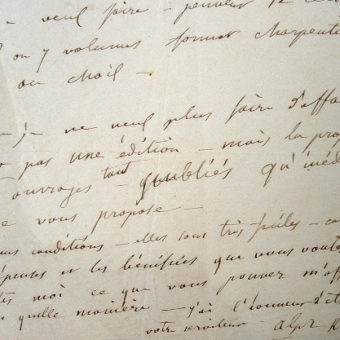 veul faire — pouvoir
ou 7 volumes format Charpenti
ou Moil —
— j — ne veul plus faire d'affa
pas une édition — mais la prop
ouvrages tant publiés qu'inéd
e vous propose —
conditions — elles sont très faciles —
épenses et les bénéfices que vous voule
tes moi ce que vous pouvez m'off
quelle manière — j'ai l'honneur d'êt
votre serviteur —